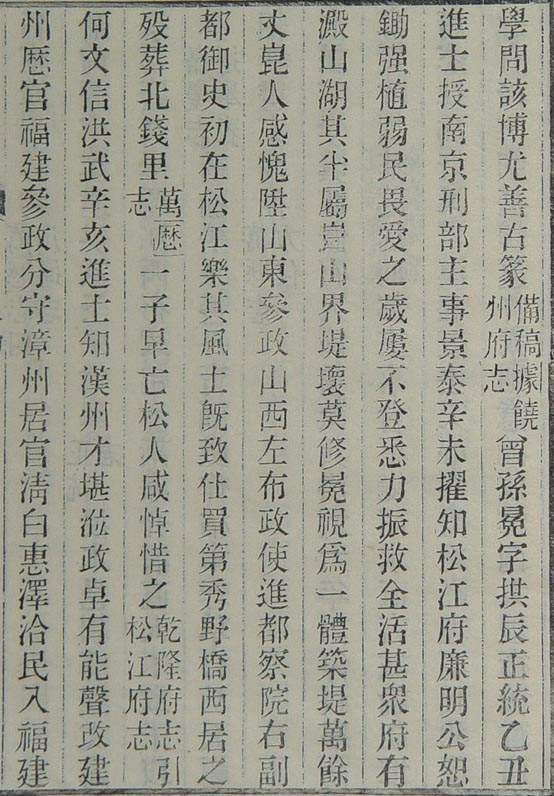 學問該博尤善古篆備稿據饒州府志曾孫冕字拱辰正統乙丑
進士授南京刑部主事景泰辛未擢知松江府廉明公恕
鋤强植弱民畏愛之歲屢不登悉力振救全活甚衆府有
澱山湖其半屬崑山界堤壞莫修冕視爲一體築堤萬餘
丈崑人感愧陞山東參政山西左布政使進都察院右副
都御史初在松江樂其風土旣致仕買第秀野橋西居之
歿葬北錢里萬歷志一子早亡松人咸悼惜之乾隆府志引松江府志
何文信洪武辛亥進士知漢州才堪涖政卓有能聲改建
州歷官福建參政分守漳州居官淸白惠澤洽民入福建